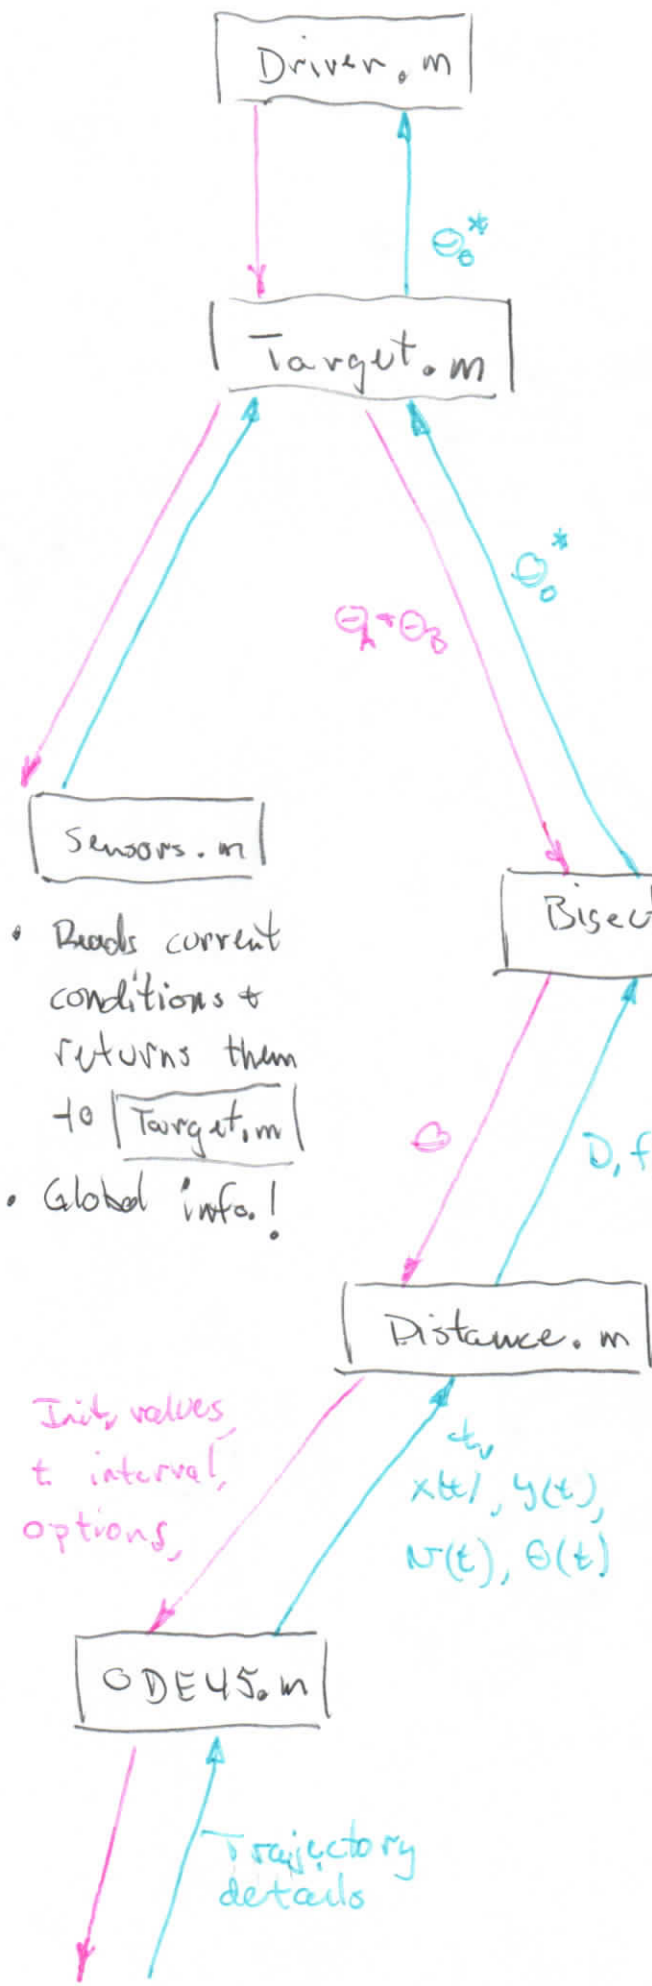 Driver.m
θ₀*
Target.m
θ₀*
θ_A + θ_B
Sensors.m
Bisect
• Reads current
conditions &
returns them
to Target.m
• Global info.!
θ
D, f
Distance.m
Init. values,
t interval,
options,
t,
x(t), y(t),
v(t), θ(t)
ODE45.m
Trajectory
details